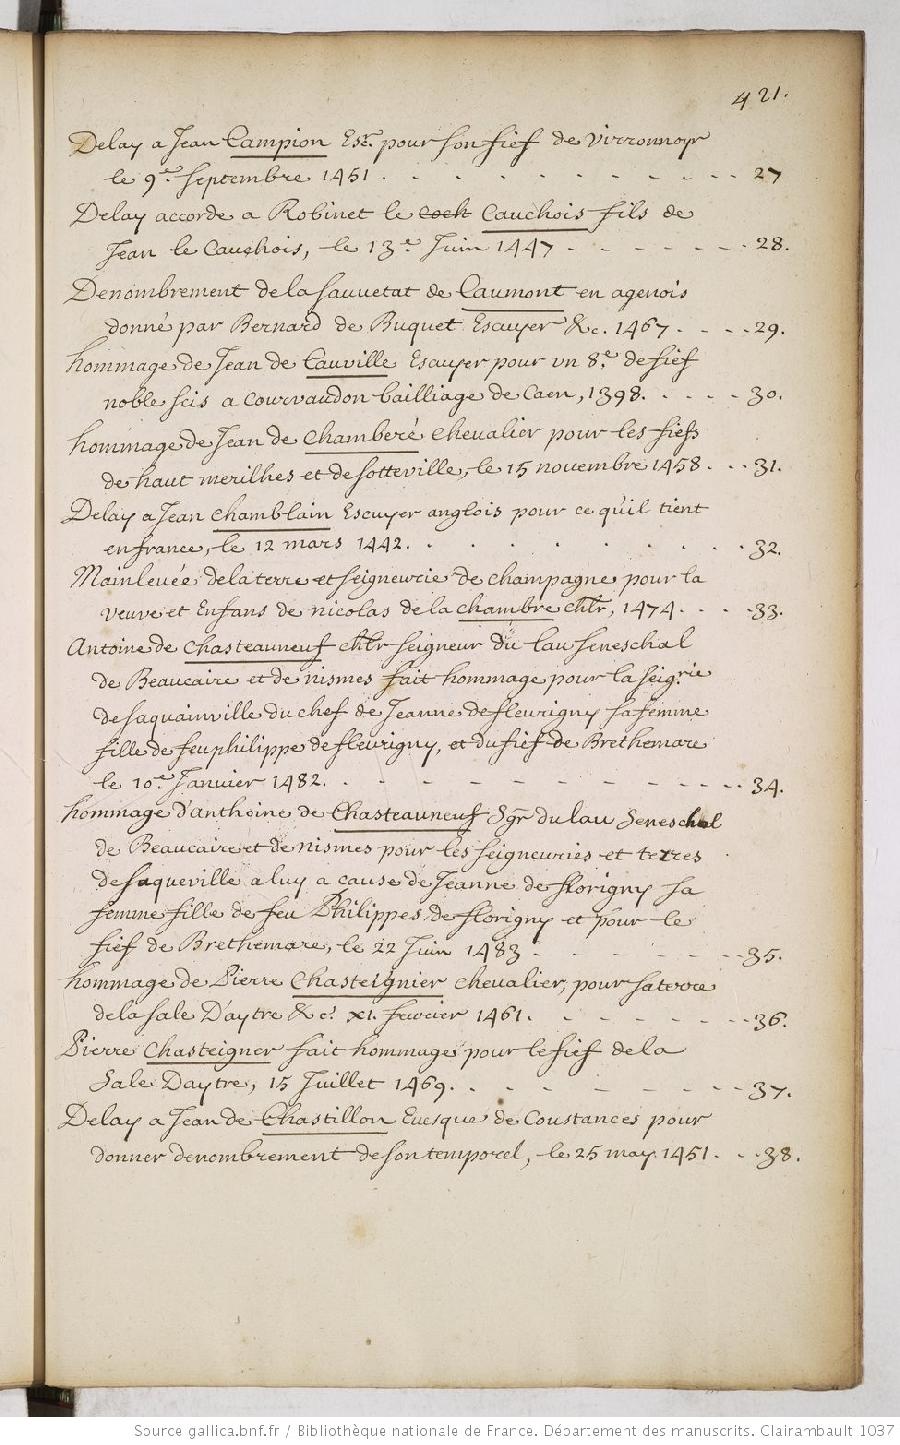 421.
Delay a Jean Campion Esc.r pour son fief de Virronnoys
le 9.e septembre 1451 . . . . . . . . . . 27
Delay accorde a Robinet le Cauchois fils de
Jean le Cauchois, le 13.e Juin 1447 - - - - - - 28.
Denombrement de la sauvetat de Caumont en agenois
donné par Bernard de Buquet Escuyer &c. 1467. - - - 29.
hommage de Jean de Cauville Escuyer pour un 8.e de fief
noble scis a Courvaudon bailliage de Caen, 1398. . . . - - 30.
hommage de Jean de Chamberé chevalier pour les fiefs
de haut merilhes et de sotteville, le 15 novembre 1458 . . . 31.
Delay a Jean Chamblain Escuyer anglois pour ce qu'il tient
en france, le 12 mars 1442. . . . . . . . 32.
Mainlevée de la terre et seigneurie de Champagne pour la
veuve et Enfans de nicolas de la Chambre chlr, 1474. - - - 33.
Antoine de Chasteauneuf chlr seigneur du lau seneschal
de Beaucaire et de nismes fait hommage pour la seig.rie
de saquainville du chef de Jeanne de fleurigny sa femme
fille de feu philippe de fleurigny, et du fief de Brethemare
le 10.e Janvier 1482. . . - - - - - - - - - 34.
hommage d'anthoine de Chasteauneuf Sgr du lau Seneschal
de Beaucaire et de nismes pour les seigneuries et terres
de saqueville a luy a cause de Jeanne de florigny sa
femme fille de feu Philippes de florigny et pour le
fief de Brethemare, le 22 Juin 1483 - . - - - - - 35.
hommage de Pierre Chasteignier chevalier, pour sa terre
de la sale D'aytre &c.a xi. fevrier 1461. - - - - - - 36.
Pierre Chasteigner fait hommage pour le fief de la
Sale Daytre, 15 Juillet 1469. . . - - - - - - - 37.
Delay a Jean de Chastillon Evesque de Coustances pour
donner denombrement de son temporel, le 25 may. 1451. - . 38.
Source gallica.bnf.fr / Bibliothèque nationale de France. Département des manuscrits. Clairambault 1037